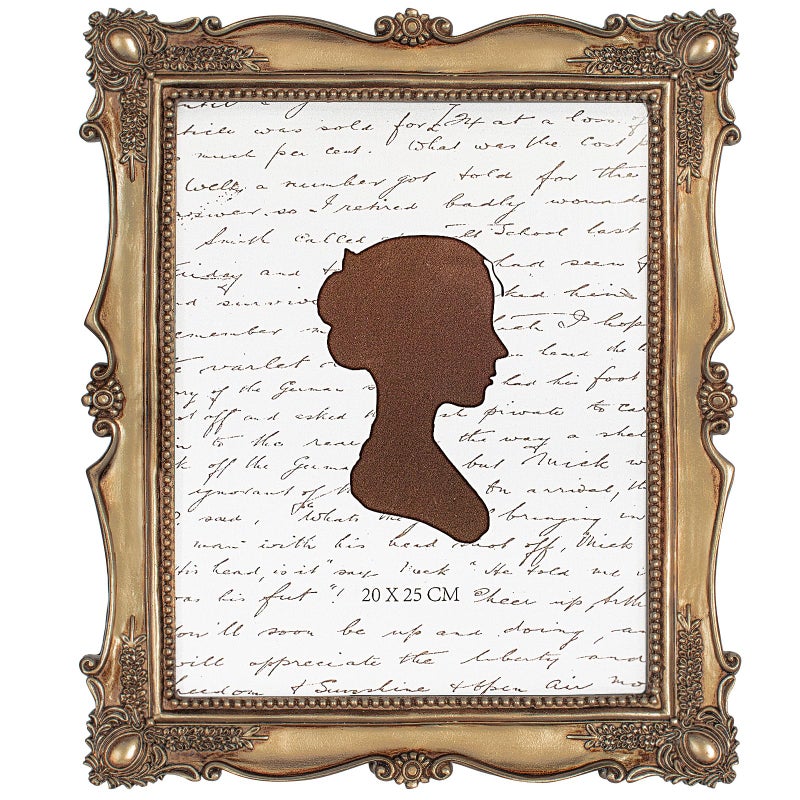 was sold for at a loss of
much per cent. What was the cost
Well, a number got told for the
answer, so I retired badly wounde
Smith called School last
iday and had seen
surviv ked him
emember ch I hop
varlet heard the
ry of the German had his foot
t off and asked private to car
to the rear the way a shel
k off the Germa but Mick w
ignorant of On arrival, th
said, "Whats the bringing in
man with his head shot off, Mick
his head, is it" says Mick "He told me
as his feet"! 20 X 25 CM Cheer up
ou'll soon be up and doing, an
will appreciate the liberty and
eedom & Sunshine & open air mo